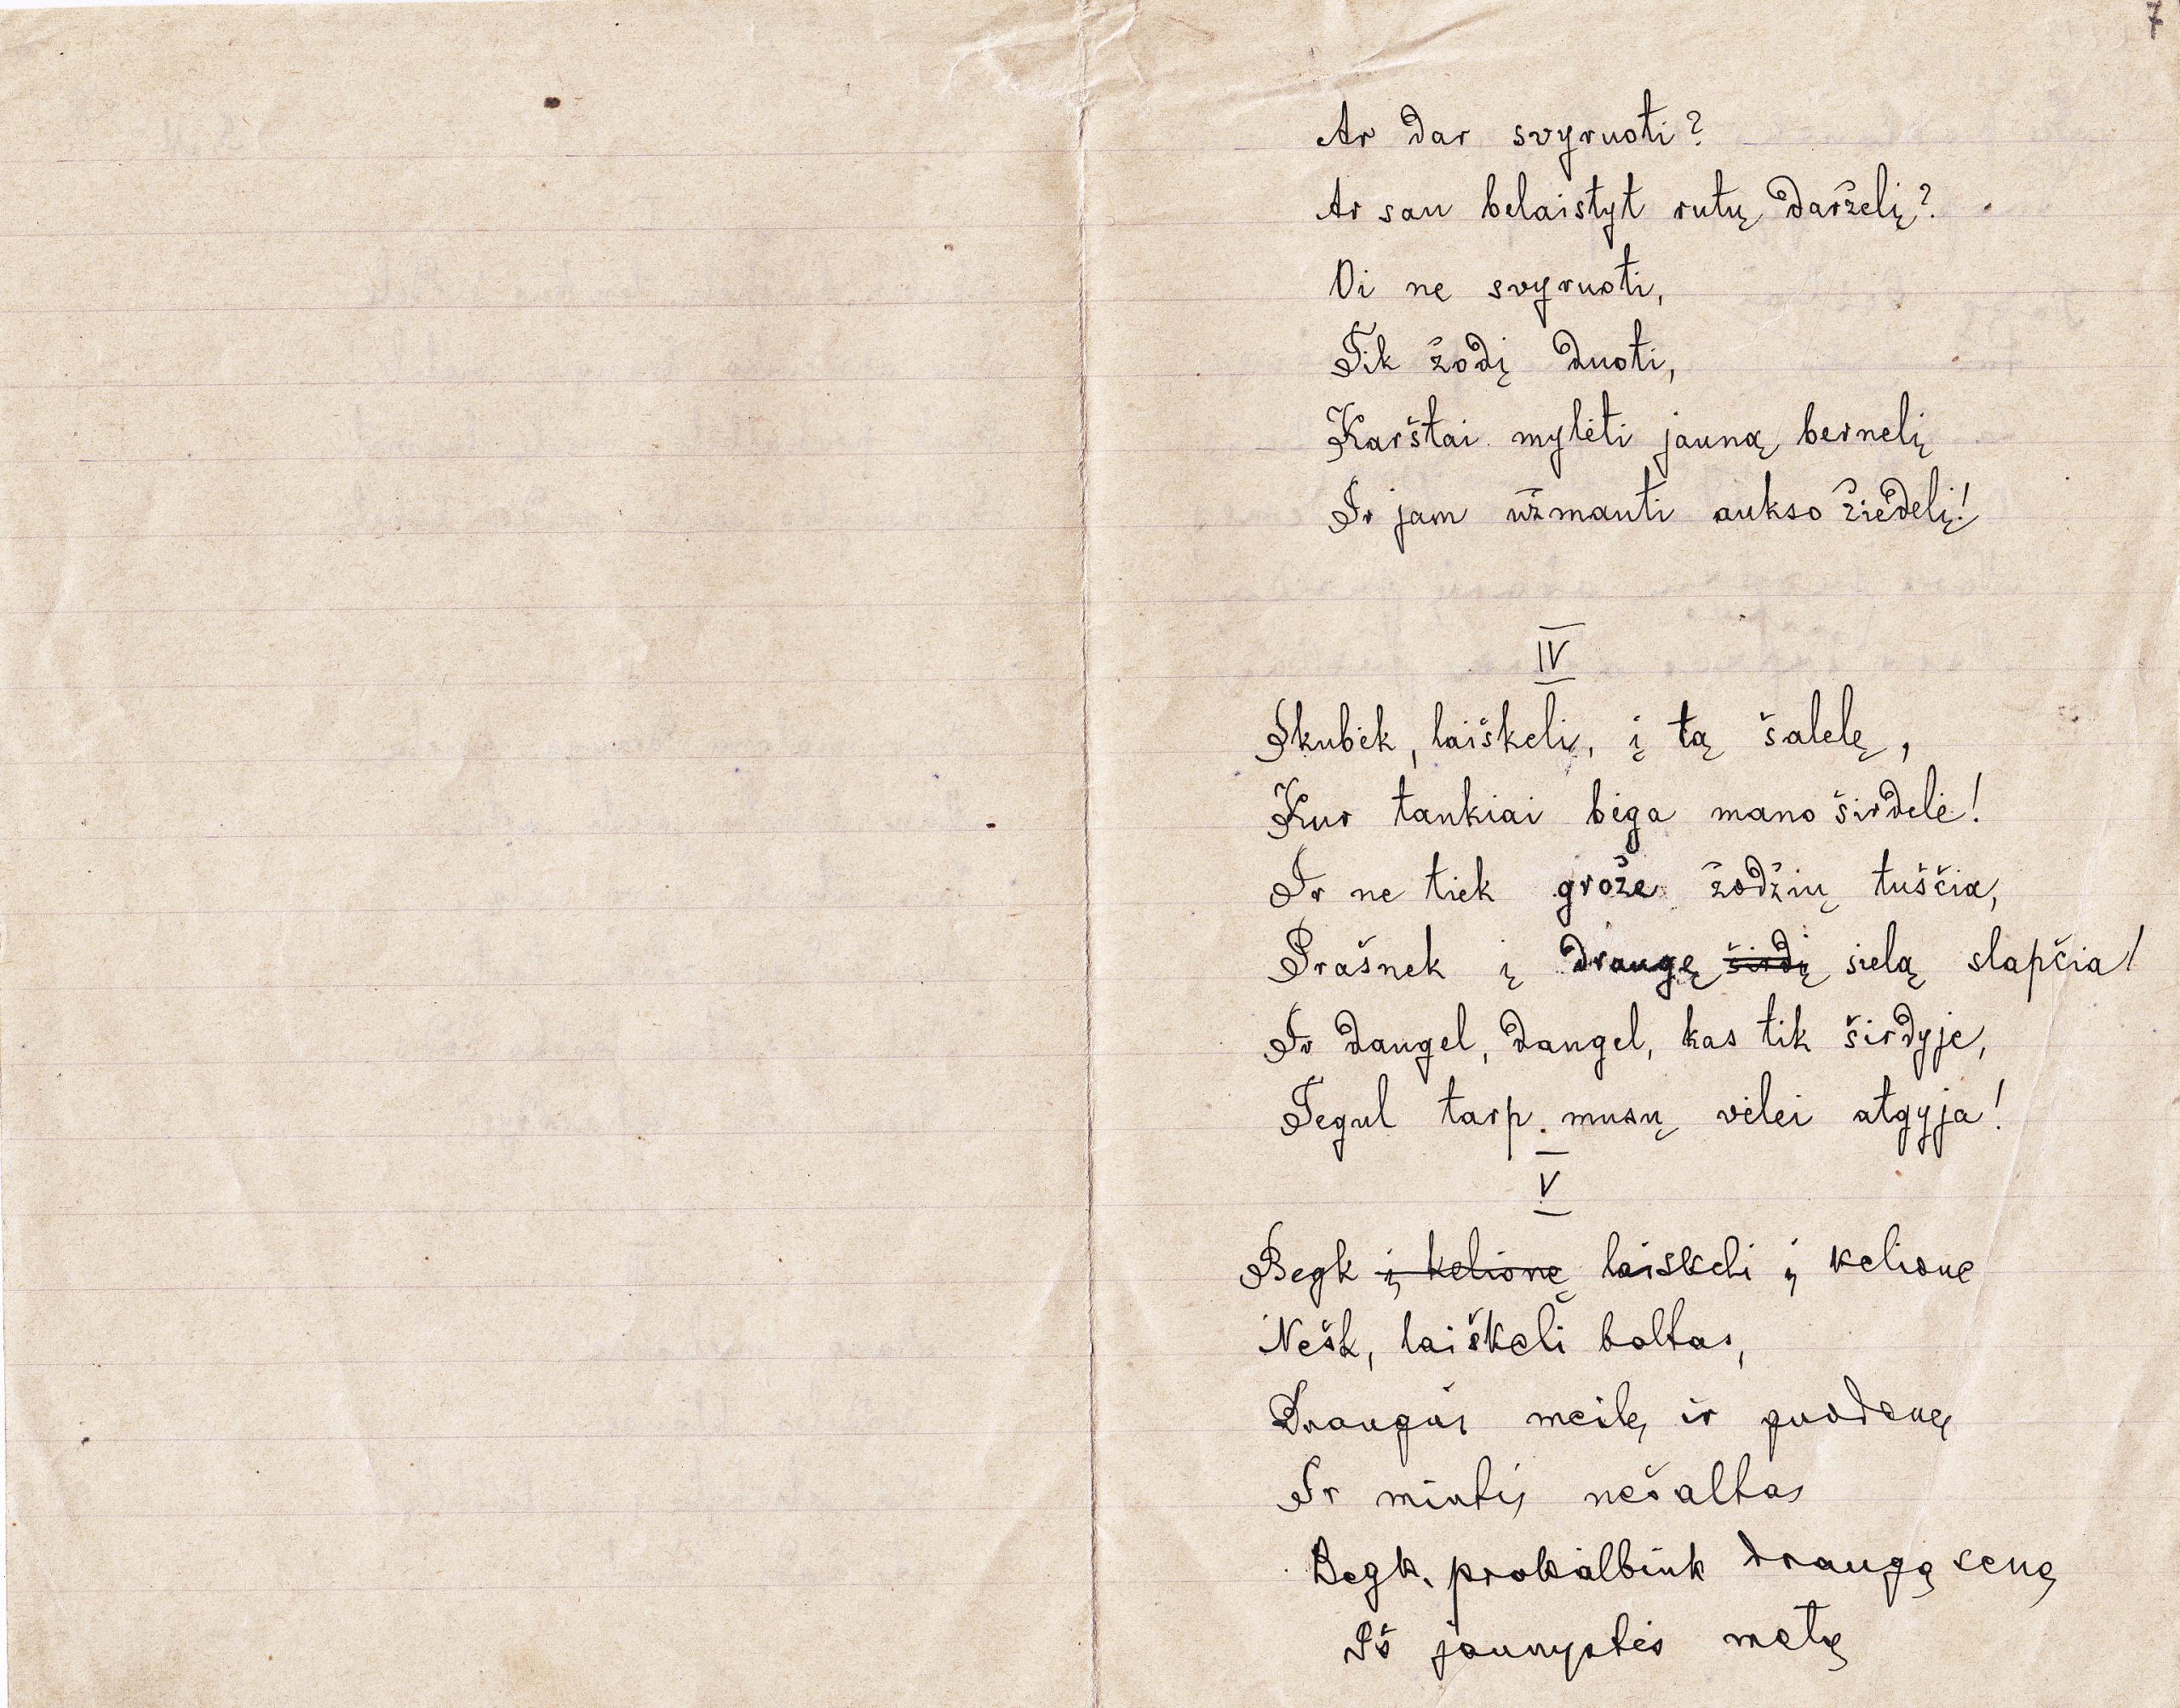 7
Ar dar svyruoti?
Ar sau belaistyt rutų darželį?
Oi ne svyruoti,
Tik žodį duoti,
Karštai mylėti jauną bernelį
Ir jam užmauti aukso žiedelį!
IV
Skubėk, laiškeli, į tą šalelę,
Kur tankiai bėga mano širdelė!
Ir ne tiek grože žodžių tuščia,
Prašnek į draugę širdį sielą slapčia!
Ir daugel, daugel, kas tik širdyje,
Tegul tarp musų vėlei atgyja!
V
Begk į kelionę laiskeli į kelione
Nešk, laiškeli baltas,
Draugus meilę ir guodonę
Ir mintis nešaltas
Begk, prakalbink draugą seną
Iš jaunystės metų